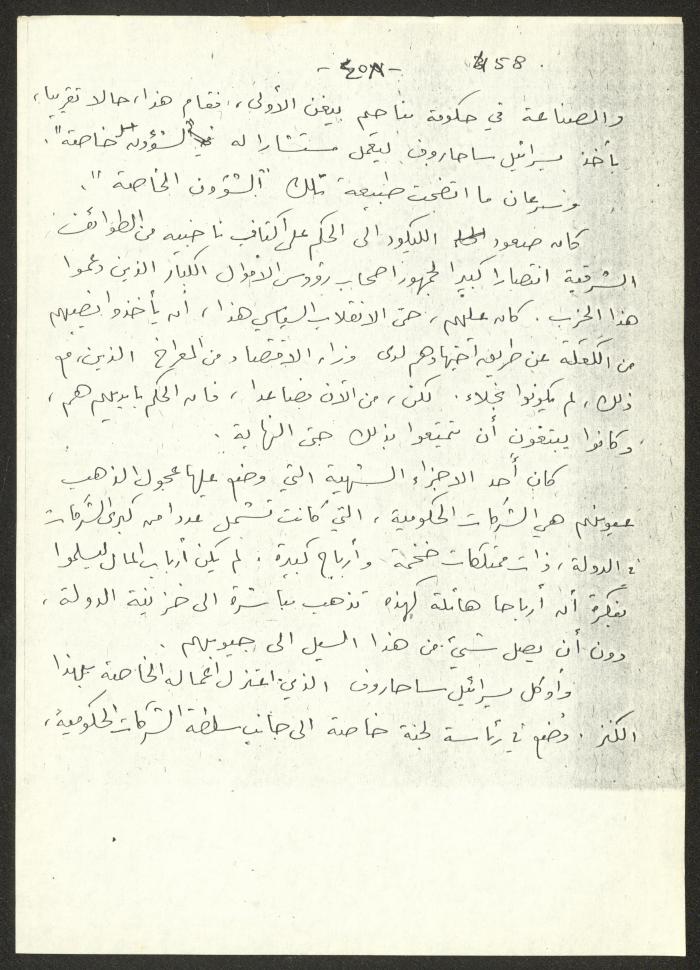 -٤٥٨- 458
والصناعة في حكومة مناحم بيغن الأولى، فقام هذا، حالا تقريبا،
بأخذ يسرائيل ساحاروف ليعمل مستشارا له لشؤون "خاصة".
وسرعان ما اتضحت طبيعة تلك "الشؤون الخاصة".
كان صعود الليكود الى الحكم على أكتاف ناخبيه من الطوائف
الشرقية انتصارا كبيرا لجمهور اصحاب رؤوس الاموال الكبار الذين دعموا
هذا الحزب. كان عليهم، حتى الانقلاب السياسي هذا، أن يأخذوا نصيبهم
من الكعكة عن طريق اجتهادهم لدى وزراء الاقتصاد من المعراخ الذين، مع
ذلك، لم يكونوا بخلاء. لكن، من الآن فصاعدا، فان الحكم بايديهم هم،
وكانوا يبتغون أن يتمتعوا بذلك حتى النهاية.
كان أحد الاجزاء الشهية التي وضع عليها عجول الذهب
عيونهم هي الشركات الحكومية، التي كانت تشمل عددا من كبرى الشركات
في الدولة، ذات ممتلكات ضخمة وأرباح كبيرة. لم يكن أرباب المال ليسلموا
بفكرة أن أرباحا هائلة كهذه تذهب مباشرة الى خزينة الدولة،
دون أن يصل شيء من هذا السيل الى جيوبهم.
وأوكل يسرائيل ساحاروف الذي اعتزل اعماله الخاصة بهذا
الكنز. وُضع في رئاسة لجنة خاصة الى جانب سلطة الشركات الحكومية،